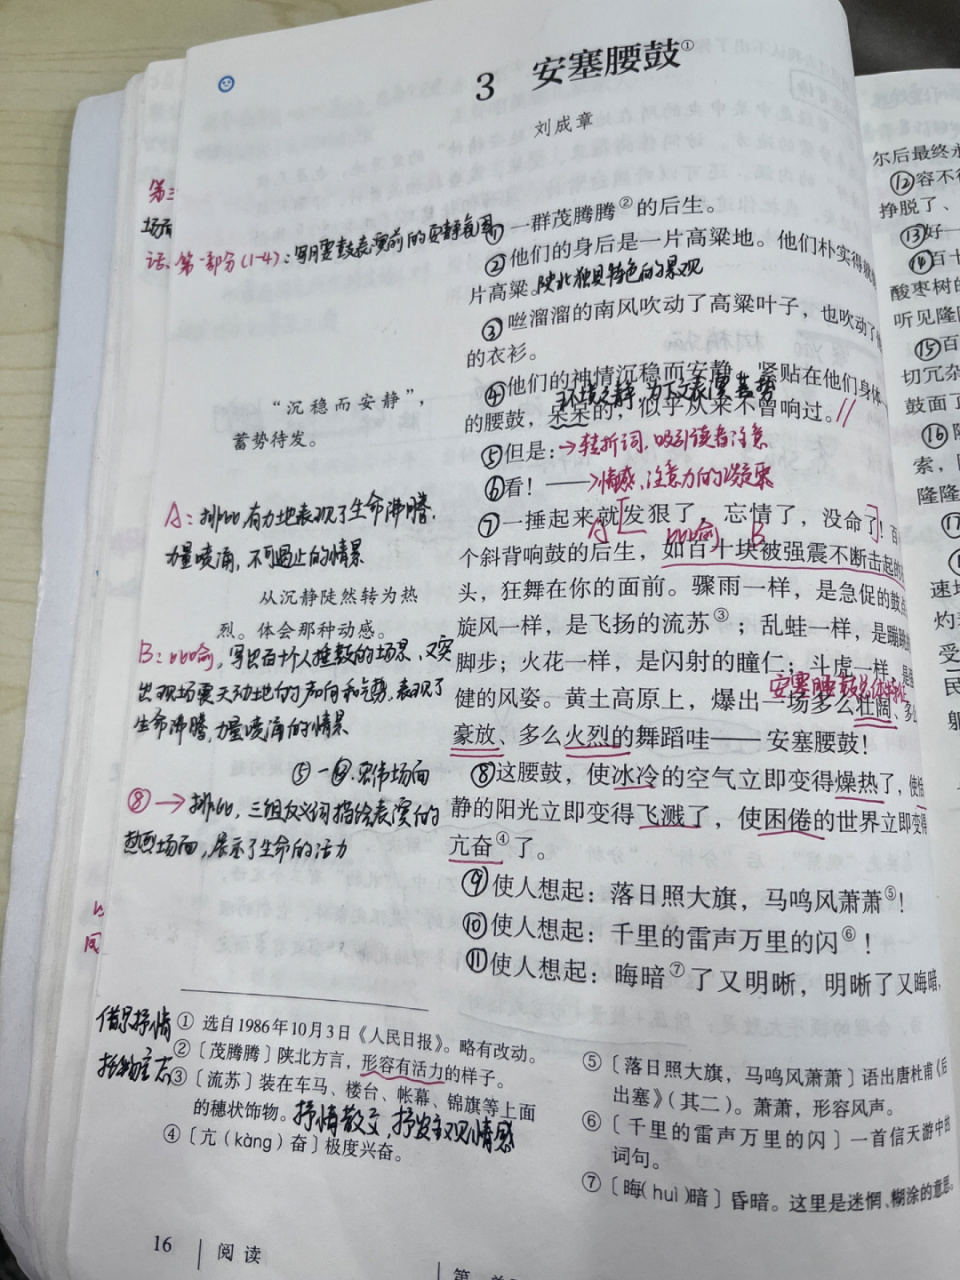 3 安塞腰鼓①
刘成章
第三
场面
话、第一部分(1-4)：写腰鼓表演前的安静氛围
①一群茂腾腾②的后生。
②他们的身后是一片高粱地。他们朴实得
片高粱。陕北独具特色的景观
③咝溜溜的南风吹动了高粱叶子，也吹动了
的衣衫。
④他们的神情沉稳而安静。紧贴在他们身体
环境之静，为下文表演蓄势
的腰鼓，呆呆的，似乎从来不曾响过。//
“沉稳而安静”，
蓄势待发。
⑤但是：→转折词，吸引读者注意
⑥看！——>情感、注意力的凝聚
⑦一捶起来就发狠了，忘情了，没命了！百
A 比喻 B
个斜背响鼓的后生，如百十块被强震不断击起的
头，狂舞在你的面前。骤雨一样，是急促的鼓点
旋风一样，是飞扬的流苏③；乱蛙一样，是蹦跳
脚步；火花一样，是闪射的瞳仁；斗虎一样，是
安塞腰鼓总体特征
健的风姿。黄土高原上，爆出一场多么壮阔、多么
豪放、多么火烈的舞蹈哇——安塞腰鼓！
A：排比，有力地表现了生命沸腾、
力量喷涌，不可遏止的情景
从沉静陡然转为热
烈。体会那种动感。
B：比喻，写出百十个人捶鼓的场景，又突
出现场震天动地的声响和气势，表现了
生命沸腾，力量喷涌的情景
宏伟场面
⑧→排比，三组反义词描绘表演的
热烈场面，展示了生命的活力
⑧这腰鼓，使冰冷的空气立即变得燥热了，使恬
静的阳光立即变得飞溅了，使困倦的世界立即变得
亢奋④了。
⑨使人想起：落日照大旗，马鸣风萧萧⑤！
⑩使人想起：千里的雷声万里的闪⑥！
⑪使人想起：晦暗⑦了又明晰，明晰了又晦暗，
借景抒情
托物言志
① 选自1986年10月3日《人民日报》。略有改动。
② 〔茂腾腾〕陕北方言，形容有活力的样子。
③ 〔流苏〕装在车马、楼台、帐幕、锦旗等上面
的穗状饰物。抒情散文，抒发主观情感
④ 〔亢（kàng）奋〕极度兴奋。
⑤ 〔落日照大旗，马鸣风萧萧〕语出唐杜甫《后
出塞》（其二）。萧萧，形容风声。
⑥ 〔千里的雷声万里的闪〕一首信天游中的
词句。
⑦ 〔晦(huì)暗〕昏暗。这里是迷惘、糊涂的意思。
16 阅读
尔后最终永
⑫容不得
挣脱了、
⑬好一
⑭百十
酸枣树的
听见隆隆
⑮百
切冗杂
鼓面了
⑯隆
索，隆
隆隆
⑰
速地
灼
受
民
躯